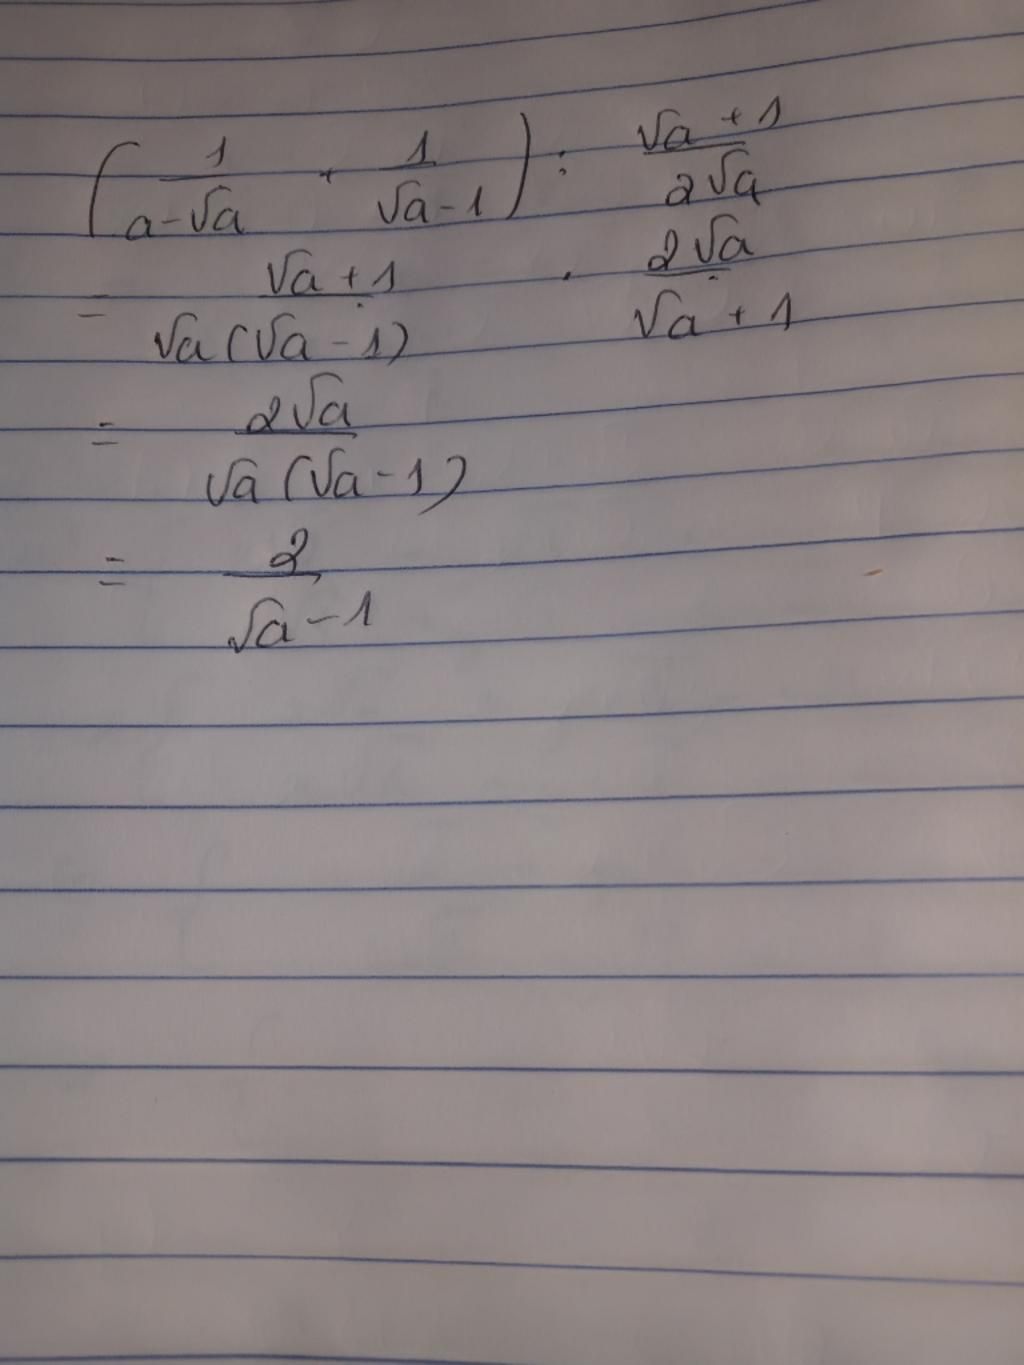 (1/(a-√a) + 1/(√a-1)) : (√a+1)/(2√a)
= (√a+1)/(√a(√a-1)) . (2√a)/(√a+1)
= (2√a)/(√a(√a-1))
= 2/(√a-1)